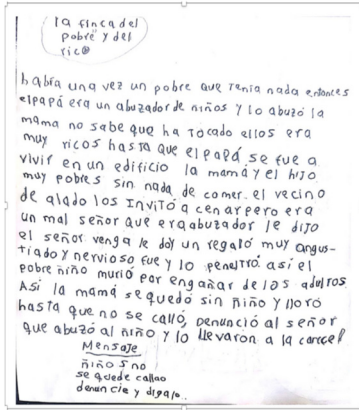 la finca del
pobre y del
rico
había una vez un pobre que tenia nada entonces
el papá era un abuzador de niños y lo abuzó la
mama no sabe que ha tocado ellos era
muy ricos hasta que el papá se fue a
vivir en un edificio la mamá y el hijo
muy pobres sin nada de comer. el vecino
de alado los invitó a cenar pero era
un mal señor que era abuzador le dijo
el señor venga le doy un regaló muy angus-
tiado y nervioso fue y lo penetró. así el
pobre niño murió por engañar de los adultos
Así la mamá se quedó sin niño y lloró
hasta que no se calló, denunció al señor
que abuzó al niño y lo llevaron a la carcel
Mensaje
niños no
se quede callao
denuncie y digalo.